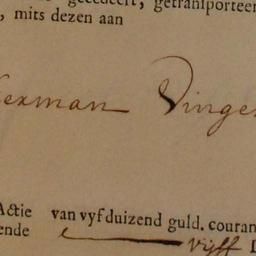 gecedeert, getransporteer
, mits dezen aan
erman Dinge
Actie van vyf duizend guld. couran
ende vijff